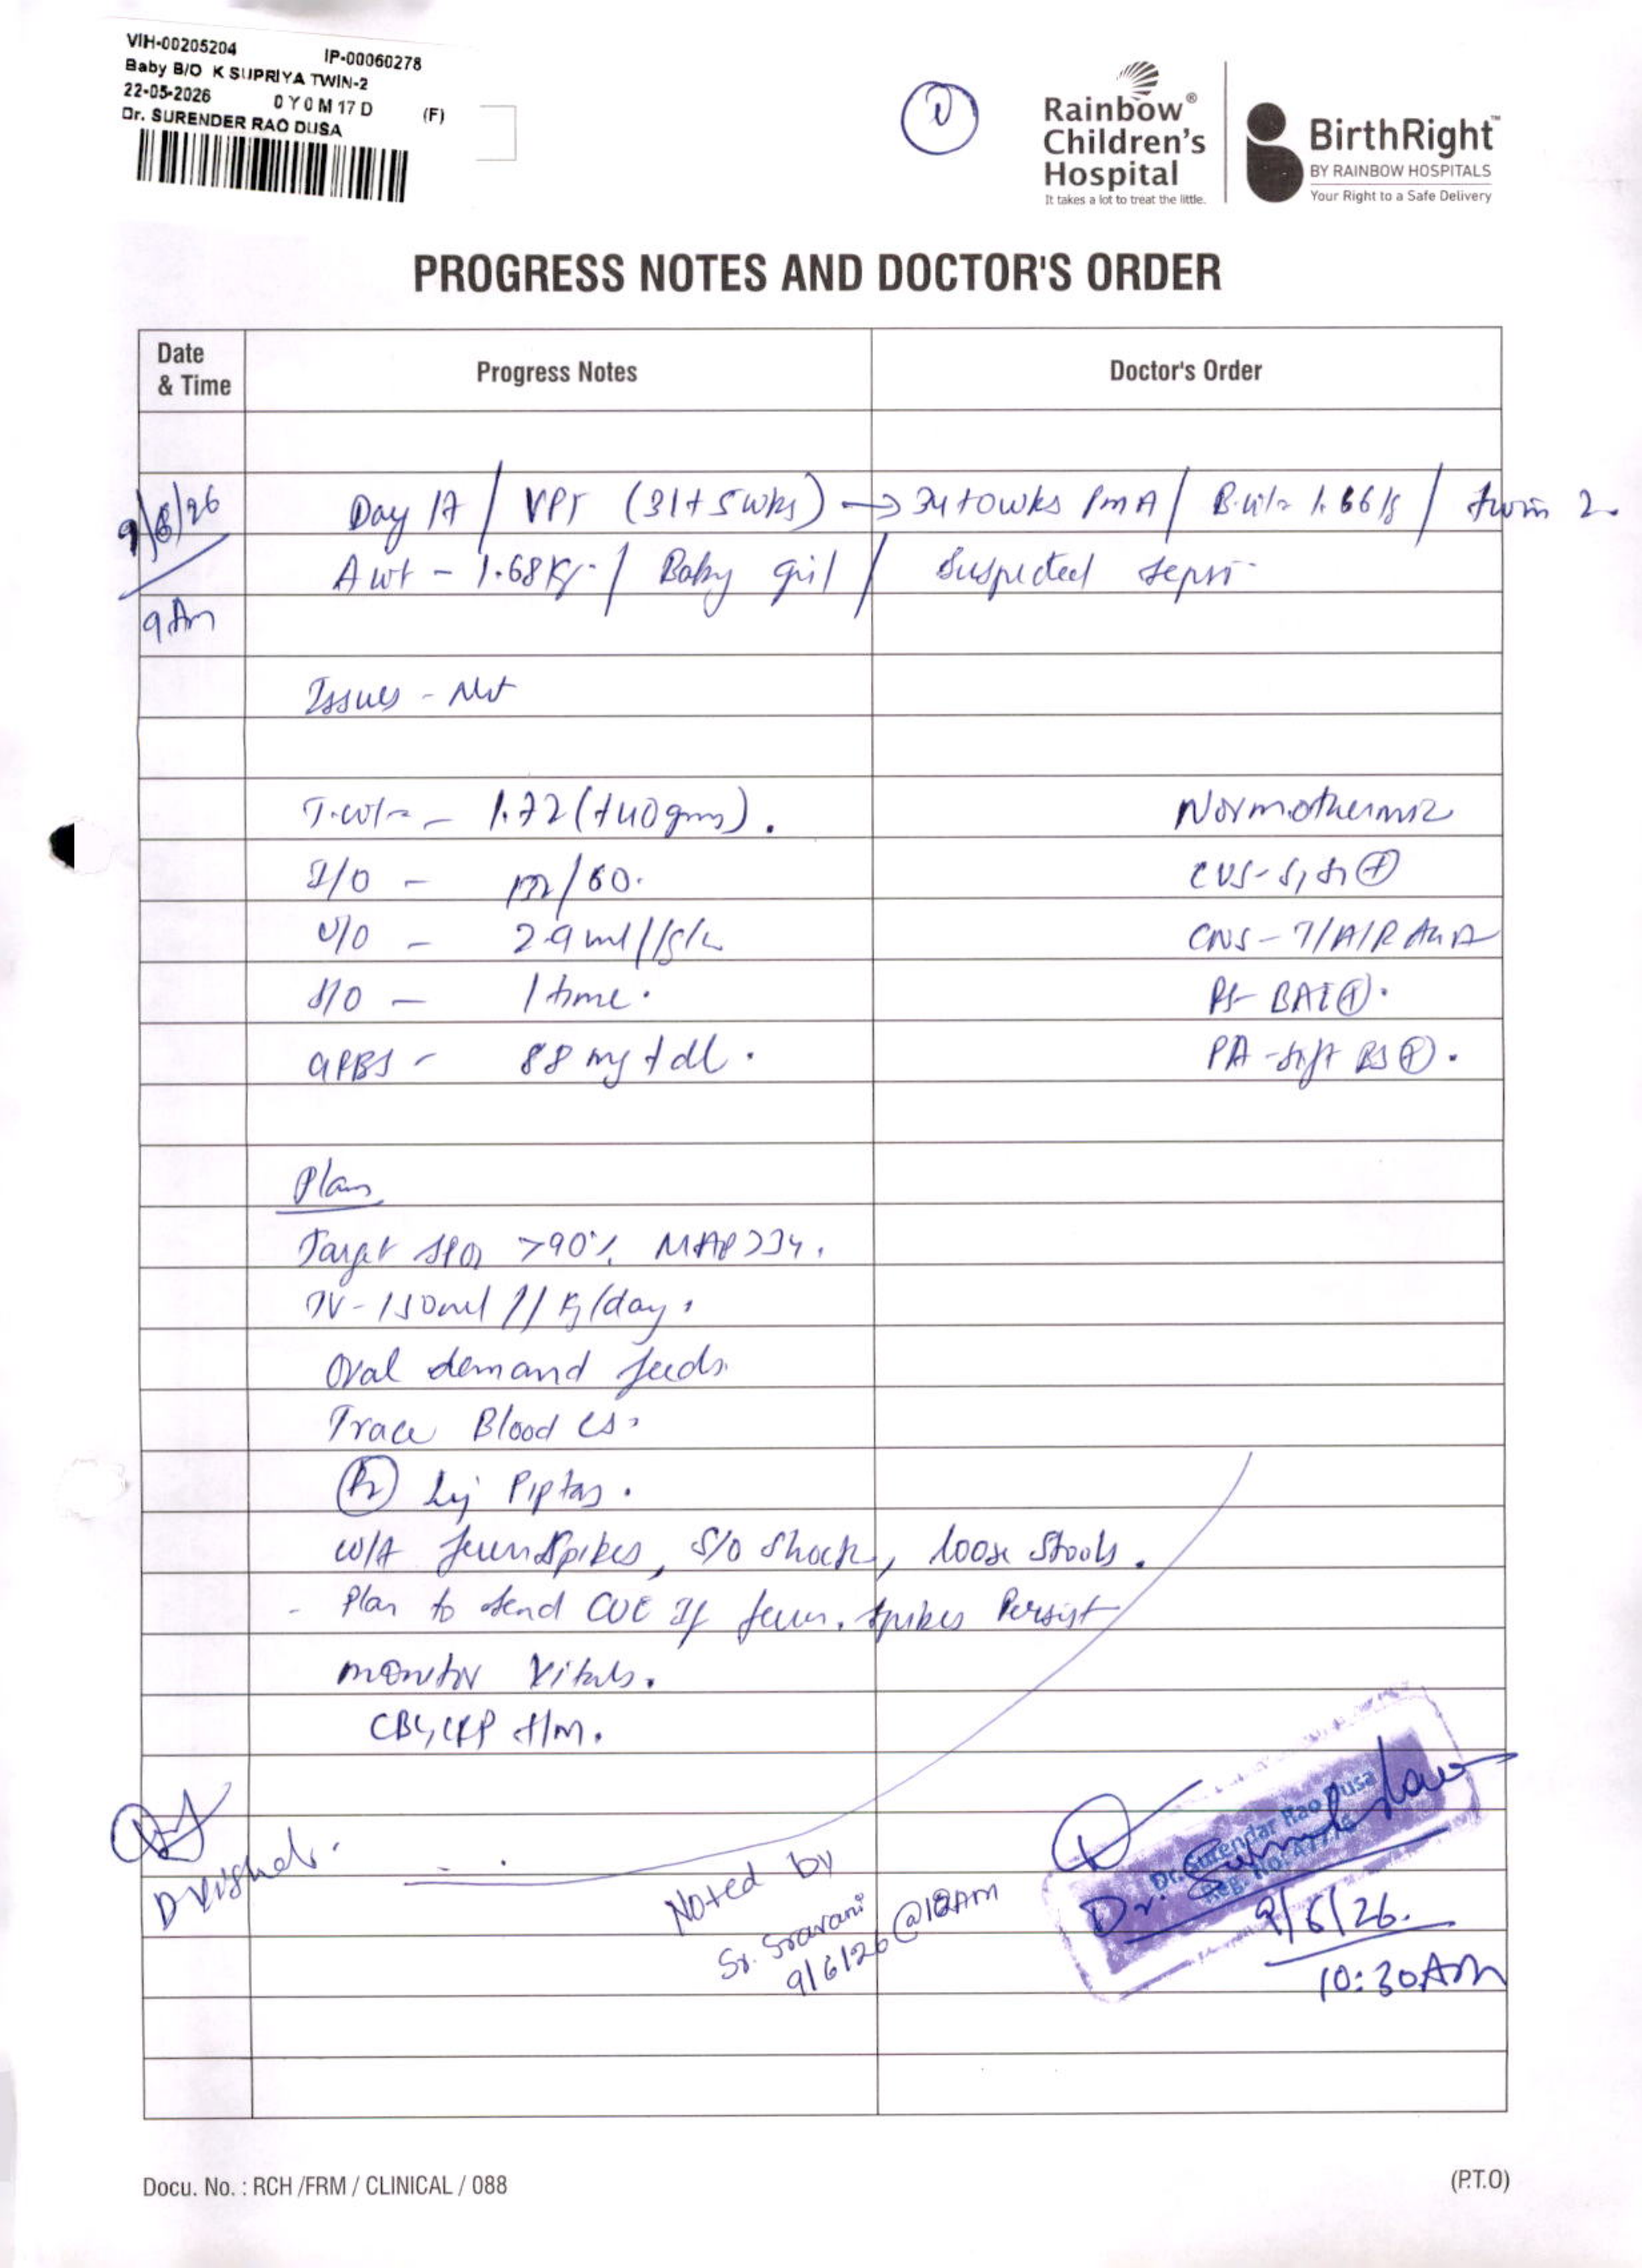 VIH-00205204 IP-00060278
Baby B/O K SUPRIYA TWIN-2
22-05-2026 0Y0M17D (F)
Dr. SURENDER RAO DUSA
Rainbow®
Children's
Hospital
It takes a lot to treat the little.
BirthRight™
BY RAINBOW HOSPITALS
Your Right to a Safe Delivery
PROGRESS NOTES AND DOCTOR'S ORDER
Date & Time Progress Notes Doctor's Order
9/6/26 Day 17 / VPT (31+5wks) → 34+0wks PMA / B.wt 1.66kg / twin 2
9Am A wt - 1.68Kg / Baby girl / Suspected sepsis
Issues - Nil
T.wt - 1.72 (+40gms). Normothermic
I/O - /60. CVS - S1S2 ⊕
U/O - 2.9ml/kg/hr CNS - T/A/R
S/O - 1 time. RS - BAE⊕.
GRBS - 88 mg/dl. PA - soft BS⊕.
Plan
Target SPO2 >90% MAP>34.
TV - 150ml/kg/day.
Oral demand feeds.
Trace Blood c/s.
Inj Piptaz.
W/f fever spikes, S/o Shock, loose stools.
- Plan to send CUE If fever spikes Persist
monitor vitals.
CBC, CRP
Noted by
Sr. Sravani
9/6/26 @10AM
Dr. Surendar Rao Dusa
Reg. No:
9/6/26.
10:30AM
Docu. No. : RCH /FRM / CLINICAL / 088 (P.T.O)